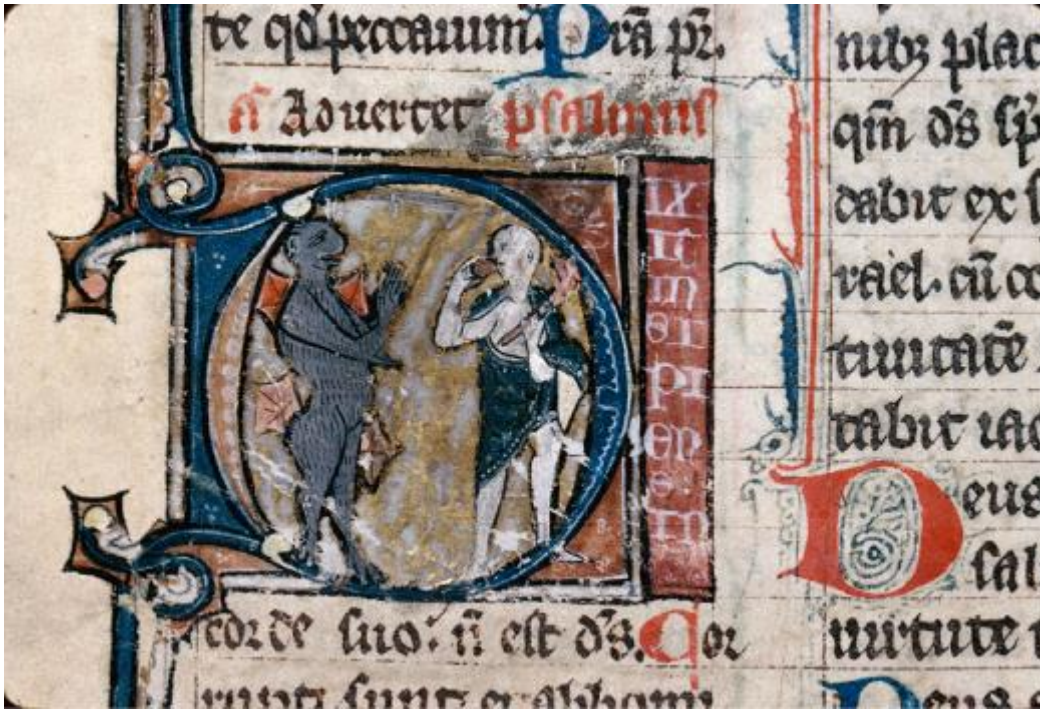 te qd̄ peccauim. Pr̄a pr̄.
A Aduertet psalmus
D
IX
IT
IN
SI
PI
EN
S. IN
corde suo: n̄ est d̄s. Cor
rupti sunt et abhomi
nibꝫ plac
qm̄ d̄s sp̄
dabit ex s
rael. cū co
tiuitatē
tabit iac
Deus
sal
uirtute
Deus